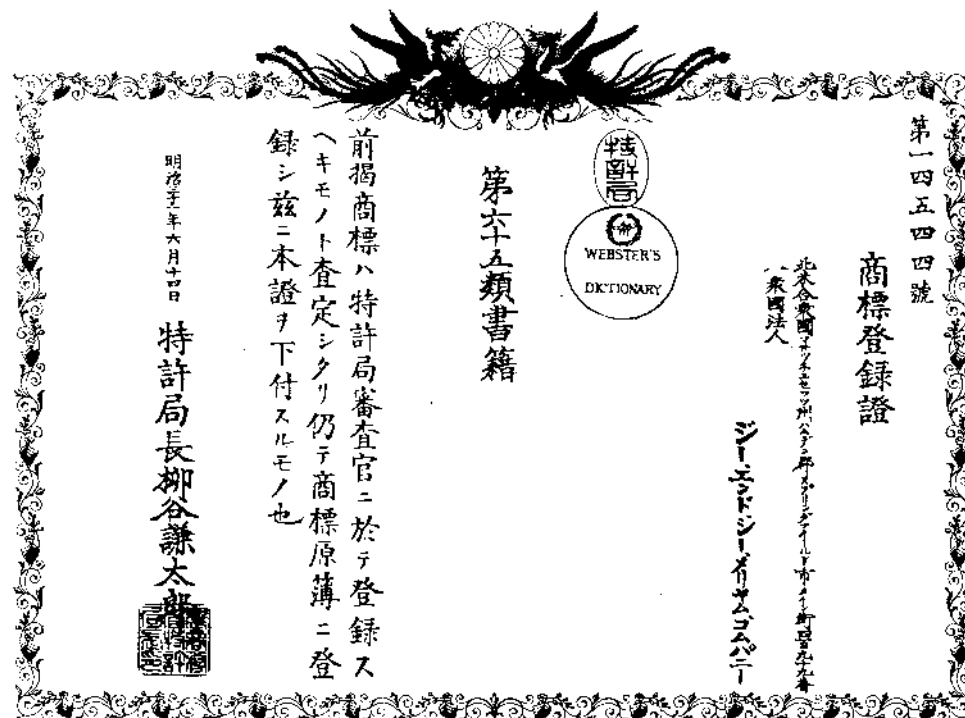 第一四五四四號
商標登録證
北米合衆國マサチュセッツ州ハムデン郡スプリングフィールド市メイン街四百九十九番
衆國法人
ジー、エンド、シー、メリヤム、コムパニー
特許局
WEBSTER'S
DICTIONARY
第六十五類書籍
前掲商標ハ特許局審査官ニ於テ登録ス
ヘキモノト査定シタリ仍テ商標原簿ニ登
録シ茲ニ本證ヲ下付スルモノ也
明治三十一年六月十四日
特許局長柳谷謙太郎